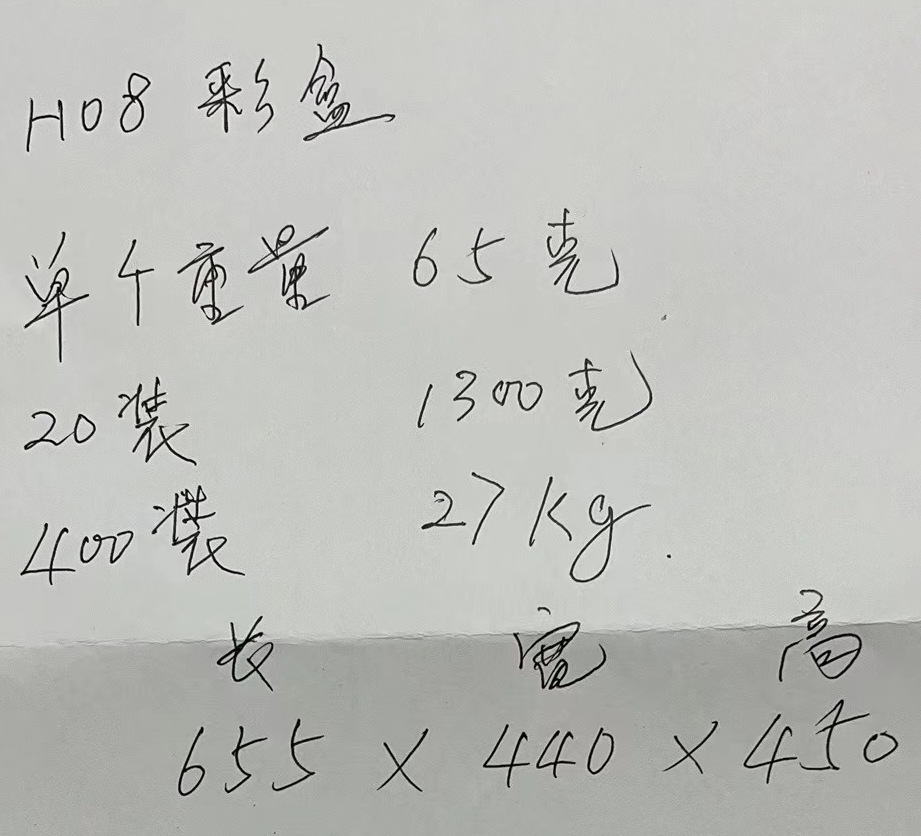 H08 彩盒
单个重量 65克
20装 1300克
400装 27kg.
长 宽 高
655 × 440 × 450